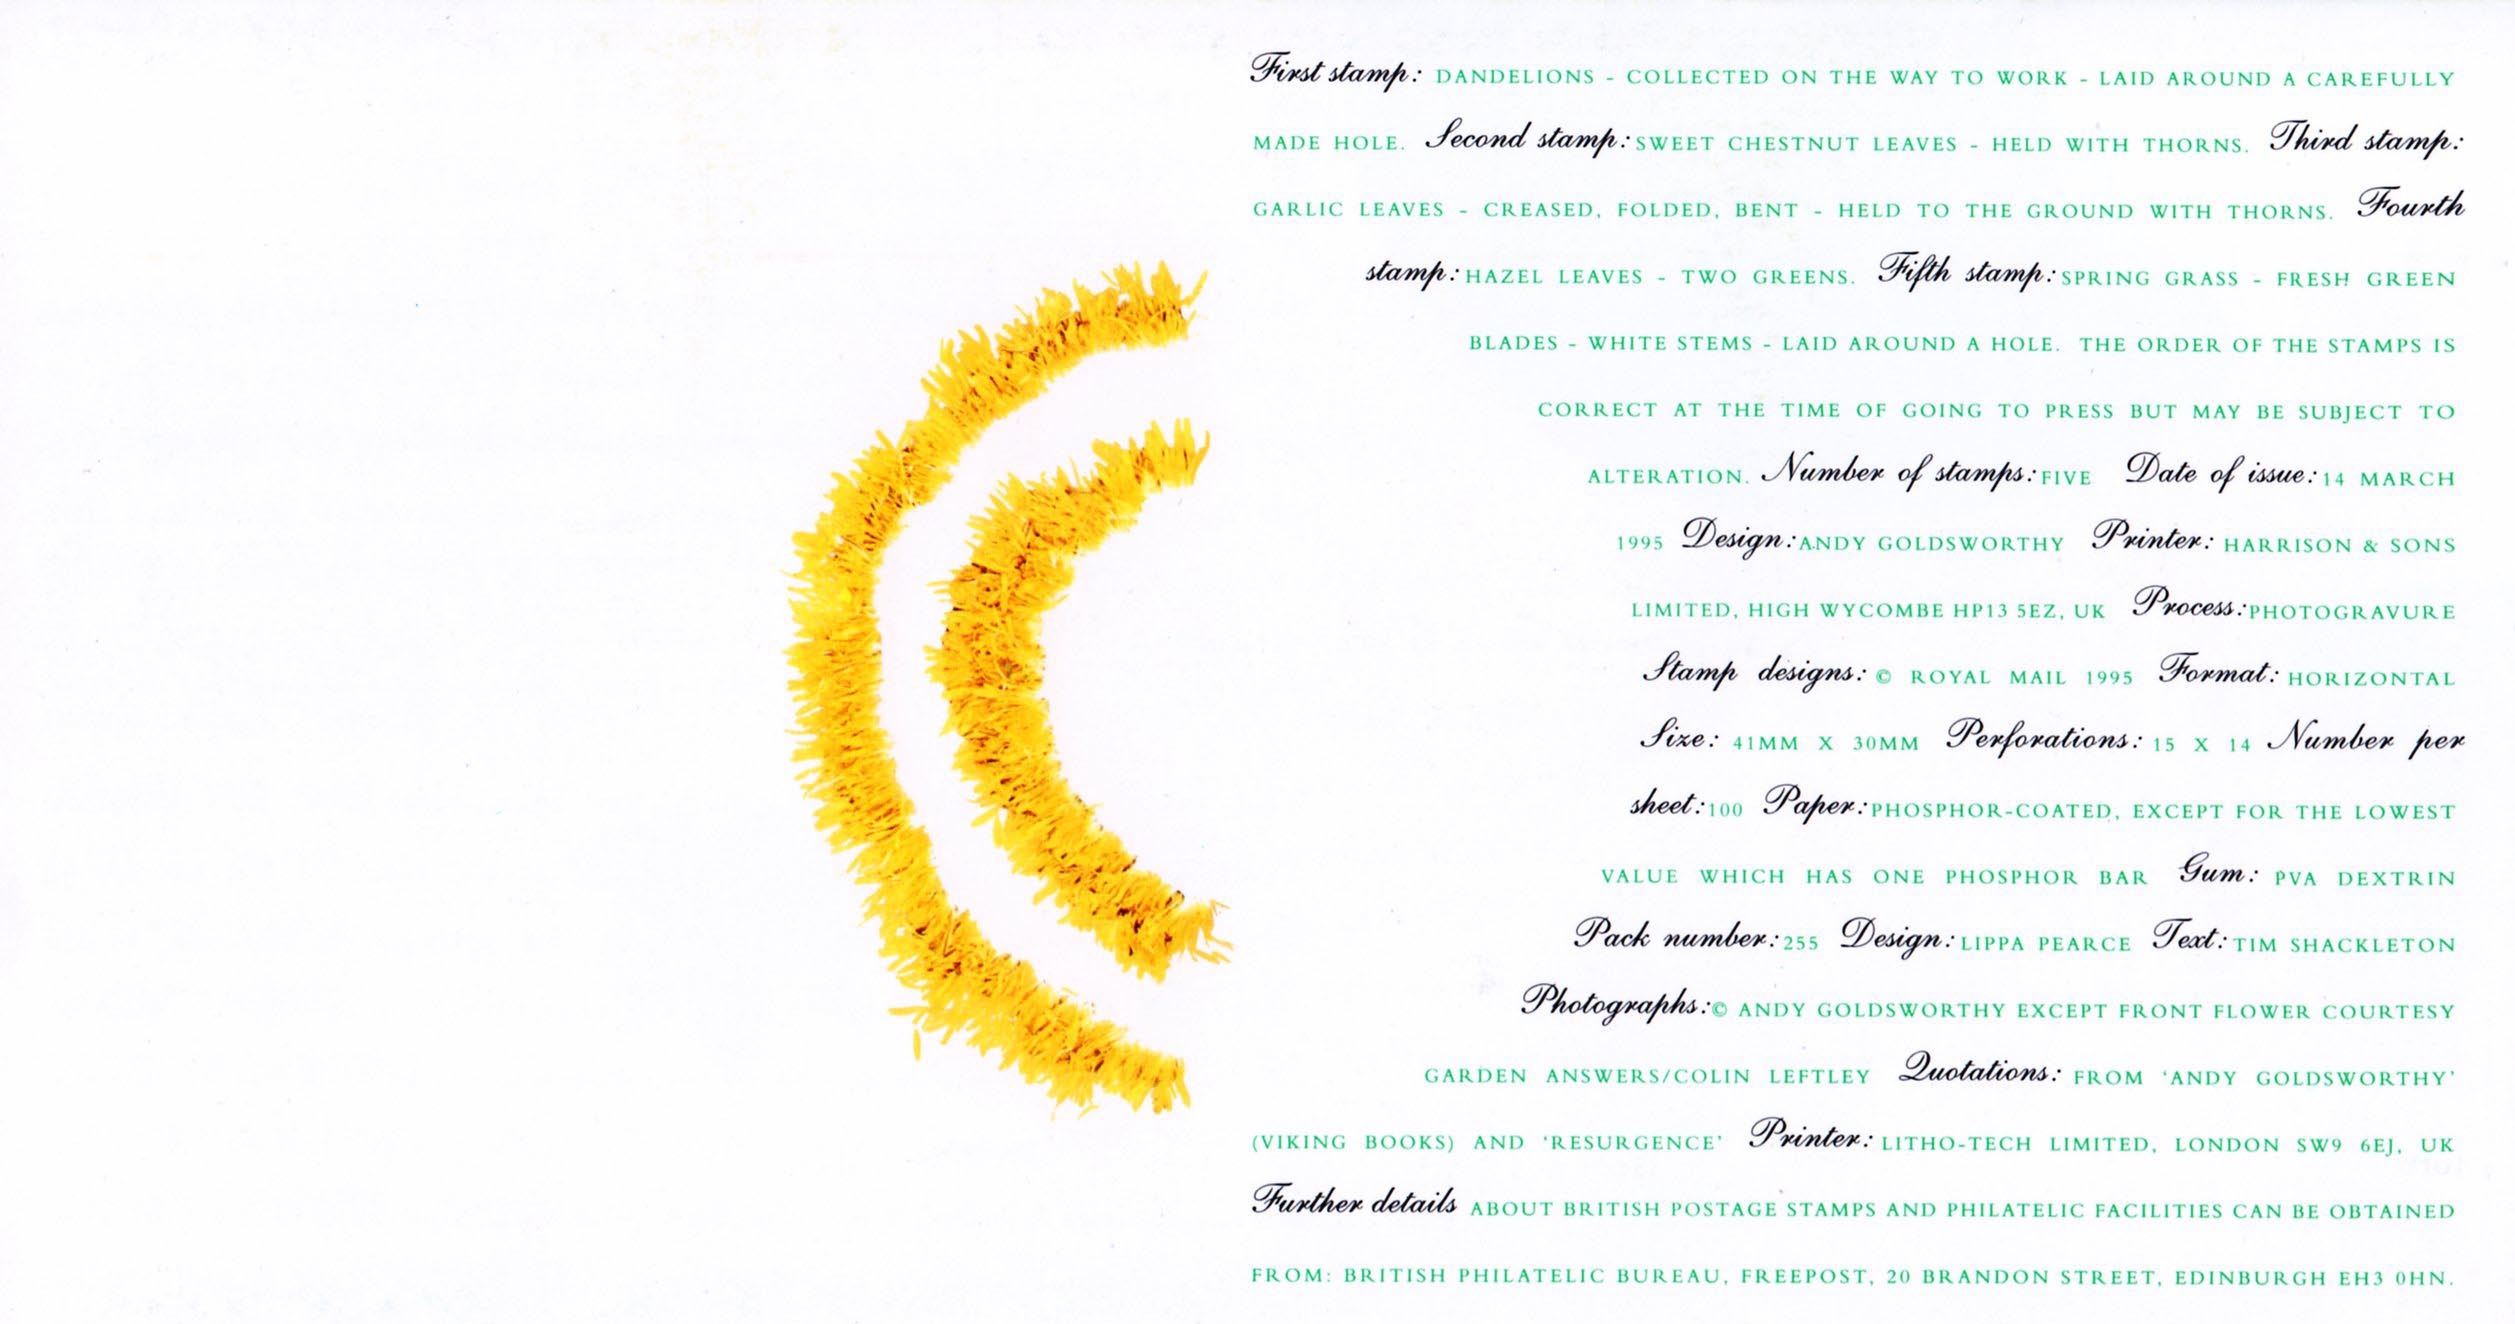 First stamp: DANDELIONS - COLLECTED ON THE WAY TO WORK - LAID AROUND A CAREFULLY
MADE HOLE. Second stamp: SWEET CHESTNUT LEAVES - HELD WITH THORNS. Third stamp:
GARLIC LEAVES - CREASED, FOLDED, BENT - HELD TO THE GROUND WITH THORNS. Fourth
stamp: HAZEL LEAVES - TWO GREENS. Fifth stamp: SPRING GRASS - FRESH GREEN
BLADES - WHITE STEMS - LAID AROUND A HOLE. THE ORDER OF THE STAMPS IS
CORRECT AT THE TIME OF GOING TO PRESS BUT MAY BE SUBJECT TO
ALTERATION. Number of stamps: FIVE Date of issue: 14 MARCH
1995 Design: ANDY GOLDSWORTHY Printer: HARRISON & SONS
LIMITED, HIGH WYCOMBE HP13 5EZ, UK Process: PHOTOGRAVURE
Stamp designs: © ROYAL MAIL 1995 Format: HORIZONTAL
Size: 41MM X 30MM Perforations: 15 X 14 Number per
sheet: 100 Paper: PHOSPHOR-COATED, EXCEPT FOR THE LOWEST
VALUE WHICH HAS ONE PHOSPHOR BAR Gum: PVA DEXTRIN
Pack number: 255 Design: LIPPA PEARCE Text: TIM SHACKLETON
Photographs: © ANDY GOLDSWORTHY EXCEPT FRONT FLOWER COURTESY
GARDEN ANSWERS/COLIN LEFTLEY Quotations: FROM 'ANDY GOLDSWORTHY'
(VIKING BOOKS) AND 'RESURGENCE' Printer: LITHO-TECH LIMITED, LONDON SW9 6EJ, UK
Further details ABOUT BRITISH POSTAGE STAMPS AND PHILATELIC FACILITIES CAN BE OBTAINED
FROM: BRITISH PHILATELIC BUREAU, FREEPOST, 20 BRANDON STREET, EDINBURGH EH3 0HN.